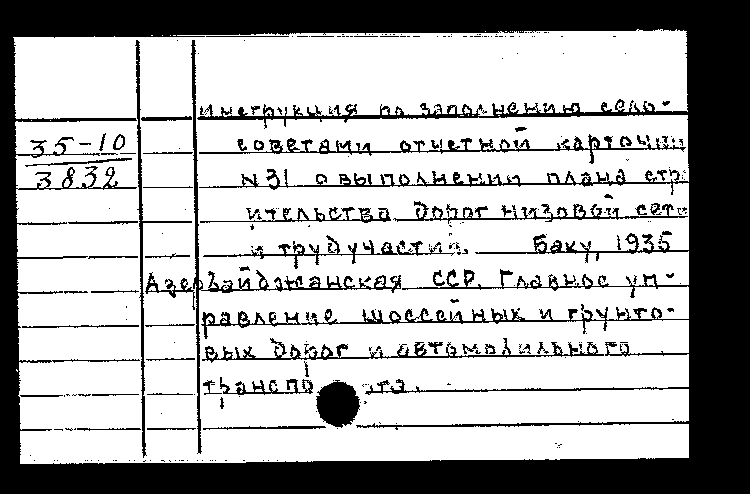 инструкция по заполнению сель-
35-10
советами отчетной карточки
3832
N 31 о выполнении плана стр
ительства дорог низовой сети
и трудучастия. Баку, 1935
Азербайджанская ССР. Главное уп-
равление шоссейных и грунто-
вых дорог и автомобильного
транспорта.